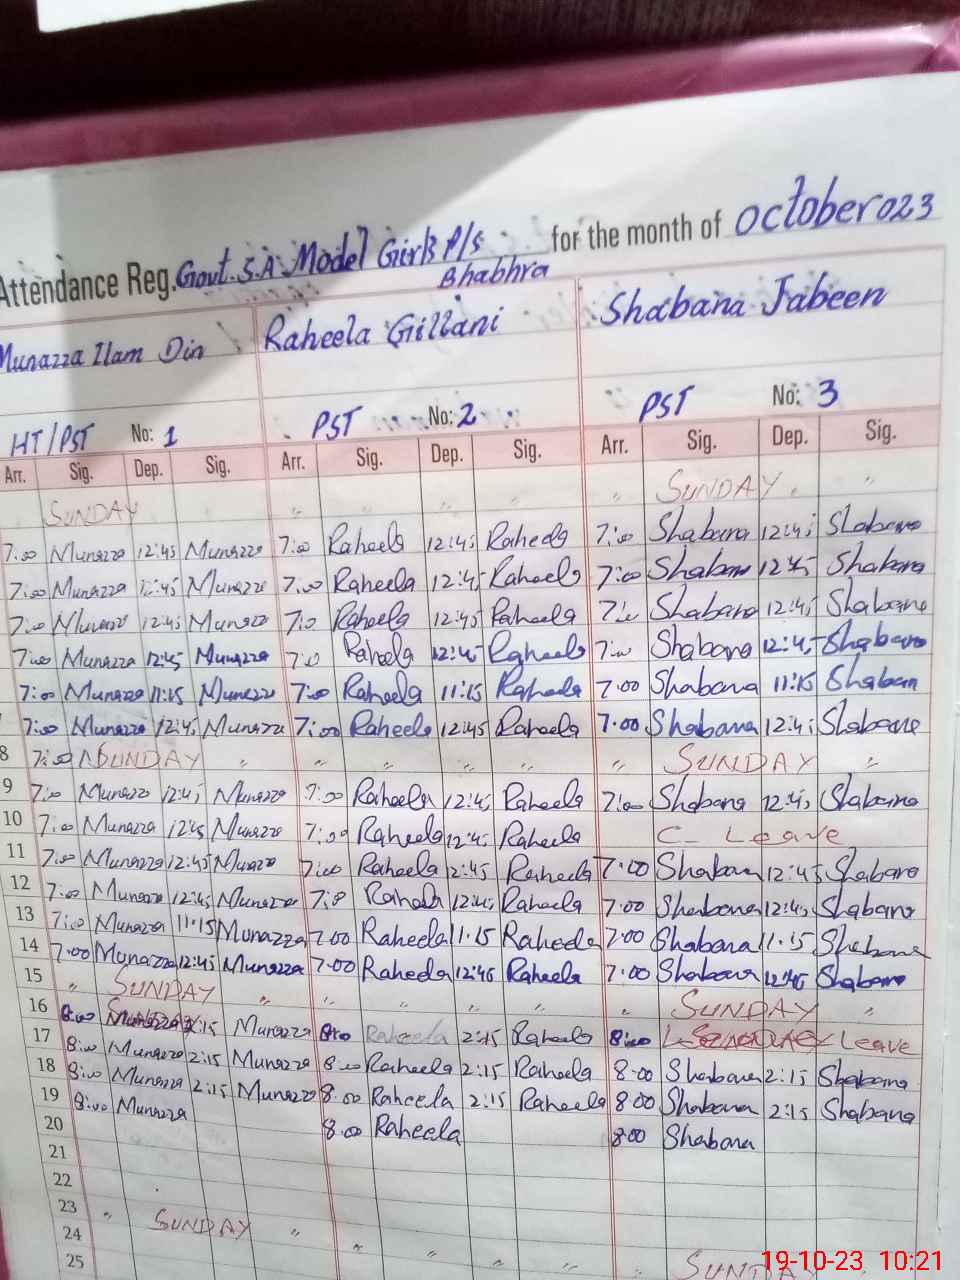 Attendance Reg. Govt. S.A. Model Girls P/S Bhabhra for the month of October 023
Munazza Ilam Din Raheela Gillani Shabana Jabeen
HT/PST No: 1 PST No: 2 PST No: 3
Arr. Sig. Dep. Sig. Arr. Sig. Dep. Sig. Arr. Sig. Dep. Sig.
SUNDAY " " " " " SUNDAY "
7:00 Munazza 12:45 Munazza 7:00 Raheela 12:45 Raheela 7:00 Shabana 12:45 Shabana
7:00 Munazza 12:45 Munazza 7:00 Raheela 12:45 Raheela 7:00 Shabana 12:45 Shabana
7:00 Munazza 12:45 Munazza 7:0 Raheela 12:45 Raheela 7:00 Shabana 12:45 Shabana
7:00 Munazza 12:45 Munazza 7:0 Raheela 12:45 Raheela 7:00 Shabana 12:45 Shabana
7:00 Munazza 11:15 Munazza 7:00 Raheela 11:15 Raheela 7:00 Shabana 11:15 Shabana
7:00 Munazza 12:45 Munazza 7:00 Raheela 12:45 Raheela 7:00 Shabana 12:45 Shabana
8 7:00 SUNDAY " " " " " " SUNDAY "
9 7:00 Munazza 12:45 Munazza 7:00 Raheela 12:45 Raheela 7:00 Shabana 12:45 Shabana
10 7:00 Munazza 12:45 Munazza 7:00 Raheela 12:45 Raheela C- Leave
11 7:00 Munazza 12:45 Munazza 7:00 Raheela 12:45 Raheela 7:00 Shabana 12:45 Shabana
12 7:00 Munazza 12:45 Munazza 7:0 Raheela 12:45 Raheela 7:00 Shabana 12:45 Shabana
13 7:00 Munazza 11:15 Munazza 7:00 Raheela 11:15 Raheela 7:00 Shabana 11:15 Shabana
14 7:00 Munazza 12:45 Munazza 7:00 Raheela 12:45 Raheela 7:00 Shabana 12:45 Shabana
15 " SUNDAY " " " " " " SUNDAY "
16 8:00 Munazza 2:15 Munazza 8:00 Raheela 2:15 Raheela 8:00 Leave
17 8:00 Munazza 2:15 Munazza 8:00 Raheela 2:15 Raheela 8:00 Shabana 2:15 Shabana
18 8:00 Munazza 2:15 Munazza 8:00 Raheela 2:15 Raheela 8:00 Shabana 2:15 Shabana
19 8:00 Munazza 8:00 Raheela 8:00 Shabana
20
21
22
23 " SUNDAY " " " " " SUNDAY
24
25
19-10-23 10:21